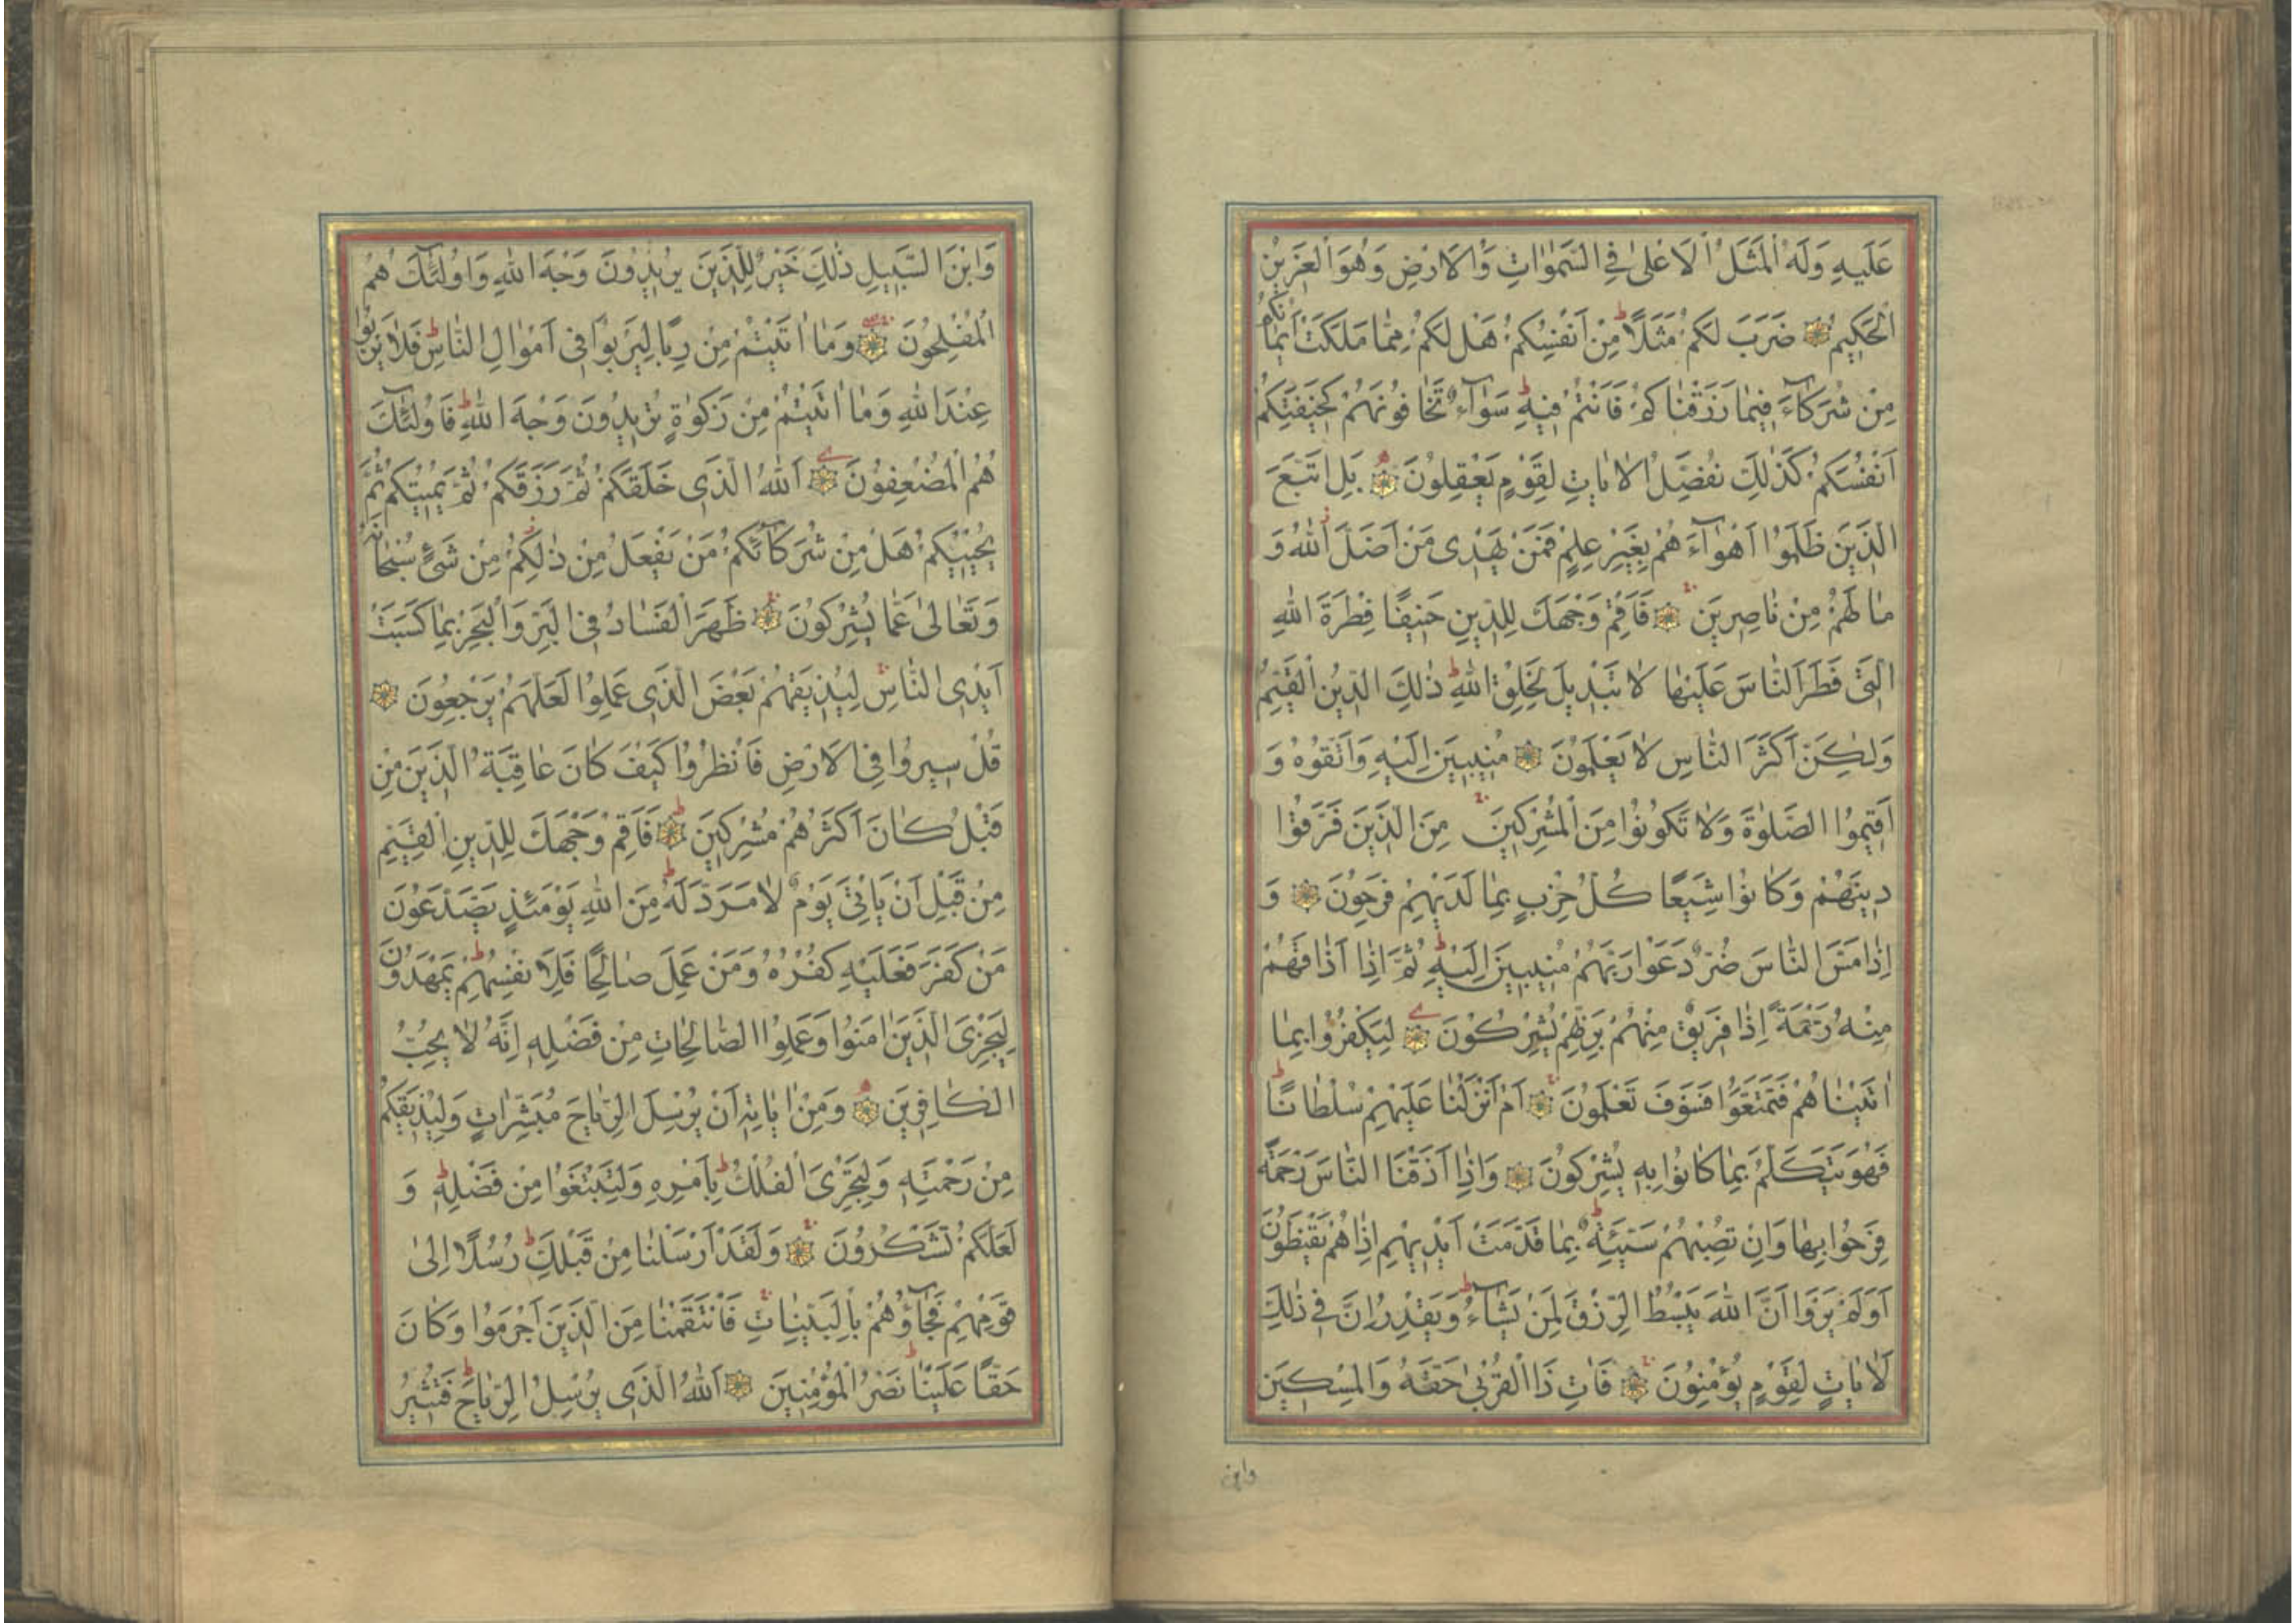 عَلَيهِ وَلَهُ الْمَثَلُ الْاَعْلٰى فِي السَّمٰوَاتِ وَالْاَرْضِ وَهُوَ الْعَزِيزُ
الْحَكِيمُ ضَرَبَ لَكُمْ مَثَلًا مِنْ اَنْفُسِكُمْ هَلْ لَكُمْ مِمَّا مَلَكَتْ اَيْمَانُكُمْ
مِنْ شُرَكَآءَ فِيمَا رَزَقْنَاكُمْ فَاَنْتُمْ فِيهِ سَوَآءٌ تَخَافُونَهُمْ كَخِيفَتِكُمْ
اَنْفُسَكُمْ كَذٰلِكَ نُفَصِّلُ الْاٰيَاتِ لِقَوْمٍ يَعْقِلُونَ بَلِ اتَّبَعَ
الَّذِينَ ظَلَمُوا اَهْوَآءَهُمْ بِغَيْرِ عِلْمٍ فَمَنْ يَهْدِى مَنْ اَضَلَّ اللهُ وَ
مَا لَهُمْ مِنْ نَاصِرِينَ فَاَقِمْ وَجْهَكَ لِلدِّينِ حَنِيفًا فِطْرَةَ اللهِ
الَّتِى فَطَرَ النَّاسَ عَلَيْهَا لَا تَبْدِيلَ لِخَلْقِ اللهِ ذٰلِكَ الدِّينُ الْقَيِّمُ
وَلٰكِنَّ اَكْثَرَ النَّاسِ لَا يَعْلَمُونَ مُنِيبِينَ اِلَيْهِ وَاتَّقُوهُ وَ
اَقِيمُوا الصَّلٰوةَ وَلَا تَكُونُوا مِنَ الْمُشْرِكِينَ مِنَ الَّذِينَ فَرَّقُوا
دِينَهُمْ وَكَانُوا شِيَعًا كُلُّ حِزْبٍ بِمَا لَدَيْهِمْ فَرِحُونَ وَ
اِذَا مَسَّ النَّاسَ ضُرٌّ دَعَوْا رَبَّهُمْ مُنِيبِينَ اِلَيْهِ ثُمَّ اِذَا اَذَاقَهُمْ
مِنْهُ رَحْمَةً اِذَا فَرِيقٌ مِنْهُمْ بِرَبِّهِمْ يُشْرِكُونَ لِيَكْفُرُوا بِمَا
اٰتَيْنَاهُمْ فَتَمَتَّعُوا فَسَوْفَ تَعْلَمُونَ اَمْ اَنْزَلْنَا عَلَيْهِمْ سُلْطَانًا
فَهُوَ يَتَكَلَّمُ بِمَا كَانُوا بِهِ يُشْرِكُونَ وَاِذَا اَذَقْنَا النَّاسَ رَحْمَةً
فَرِحُوا بِهَا وَاِنْ تُصِبْهُمْ سَيِّئَةٌ بِمَا قَدَّمَتْ اَيْدِيهِمْ اِذَا هُمْ يَقْنَطُونَ
اَوَلَمْ يَرَوْا اَنَّ اللهَ يَبْسُطُ الرِّزْقَ لِمَنْ يَشَآءُ وَيَقْدِرُ اِنَّ فِي ذٰلِكَ
لَاٰيَاتٍ لِقَوْمٍ يُؤْمِنُونَ فَاٰتِ ذَا الْقُرْبٰى حَقَّهُ وَالْمِسْكِينَ
وابن
وَابْنَ السَّبِيلِ ذٰلِكَ خَيْرٌ لِلَّذِينَ يُرِيدُونَ وَجْهَ اللهِ وَاُولٰئِكَ هُمُ
الْمُفْلِحُونَ وَمَا اٰتَيْتُمْ مِنْ رِبًا لِيَرْبُوَا فِى اَمْوَالِ النَّاسِ فَلَا يَرْبُوا
عِنْدَ اللهِ وَمَا اٰتَيْتُمْ مِنْ زَكٰوةٍ تُرِيدُونَ وَجْهَ اللهِ فَاُولٰئِكَ
هُمُ الْمُضْعِفُونَ اَللهُ الَّذِى خَلَقَكُمْ ثُمَّ رَزَقَكُمْ ثُمَّ يُمِيتُكُمْ ثُمَّ
يُحْيِيكُمْ هَلْ مِنْ شُرَكَآئِكُمْ مَنْ يَفْعَلُ مِنْ ذٰلِكُمْ مِنْ شَىْءٍ سُبْحَانَهُ
وَتَعَالٰى عَمَّا يُشْرِكُونَ ظَهَرَ الْفَسَادُ فِى الْبَرِّ وَالْبَحْرِ بِمَا كَسَبَتْ
اَيْدِى النَّاسِ لِيُذِيقَهُمْ بَعْضَ الَّذِى عَمِلُوا لَعَلَّهُمْ يَرْجِعُونَ
قُلْ سِيرُوا فِى الْاَرْضِ فَانْظُرُوا كَيْفَ كَانَ عَاقِبَةُ الَّذِينَ مِنْ
قَبْلُ كَانَ اَكْثَرُهُمْ مُشْرِكِينَ فَاَقِمْ وَجْهَكَ لِلدِّينِ الْقَيِّمِ
مِنْ قَبْلِ اَنْ يَاْتِىَ يَوْمٌ لَا مَرَدَّ لَهُ مِنَ اللهِ يَوْمَئِذٍ يَصَّدَّعُونَ
مَنْ كَفَرَ فَعَلَيْهِ كُفْرُهُ وَمَنْ عَمِلَ صَالِحًا فَلِاَنْفُسِهِمْ يَمْهَدُونَ
لِيَجْزِىَ الَّذِينَ اٰمَنُوا وَعَمِلُوا الصَّالِحَاتِ مِنْ فَضْلِهِ اِنَّهُ لَا يُحِبُّ
الْكَافِرِينَ وَمِنْ اٰيَاتِهِ اَنْ يُرْسِلَ الرِّيَاحَ مُبَشِّرَاتٍ وَلِيُذِيقَكُمْ
مِنْ رَحْمَتِهِ وَلِتَجْرِىَ الْفُلْكُ بِاَمْرِهِ وَلِتَبْتَغُوا مِنْ فَضْلِهِ وَ
لَعَلَّكُمْ تَشْكُرُونَ وَلَقَدْ اَرْسَلْنَا مِنْ قَبْلِكَ رُسُلًا اِلٰى
قَوْمِهِمْ فَجَآؤُهُمْ بِالْبَيِّنَاتِ فَانْتَقَمْنَا مِنَ الَّذِينَ اَجْرَمُوا وَكَانَ
حَقًّا عَلَيْنَا نَصْرُ الْمُؤْمِنِينَ اَللهُ الَّذِى يُرْسِلُ الرِّيَاحَ فَتُثِيرُ